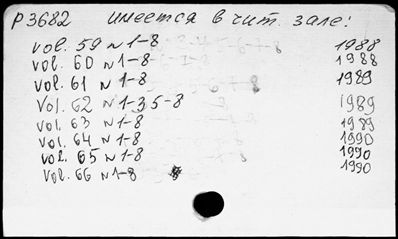 P3682 имеется в чит. зале:
vol. 59 N 1-8 1988
vol. 60 N 1-8 1988
vol. 61 N 1-8 1989
vol. 62 N 1-3,5-8 1989
vol. 63 N 1-8 1989
vol. 64 N 1-8 1990
vol. 65 N 1-8 1990
vol. 66 N 1-8 1990